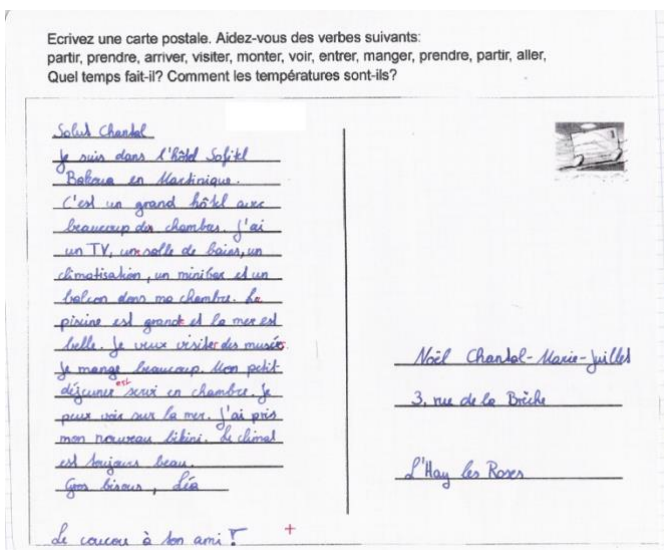 Ecrivez une carte postale. Aidez-vous des verbes suivants:
partir, prendre, arriver, visiter, monter, voir, entrer, manger, prendre, partir, aller,
Quel temps fait-il? Comment les températures sont-ils?
Salut Chantal
Je suis dans l'hôtel Sofitel
Bakoua en Martinique.
C'est un grand hôtel avec
beaucoup des chambres. J'ai
un TV, une salle de bains, un
climatisation, un minibar et un
balcon dans ma chambre. La
piscine est grande et la mer est
belle. Je veux visiter des musées.
Je mange beaucoup. Mon petit-
déjeuner est servi en chambre. Je
peux voir sur la mer. J'ai pris
mon nouveau bikini. Le climat
est toujours beau.
Gros bisous, Léa
Le coucou à ton ami!
+
Noël Chantal-Marie-Juillet
3, rue de la Brèche
L'Hay les Roses